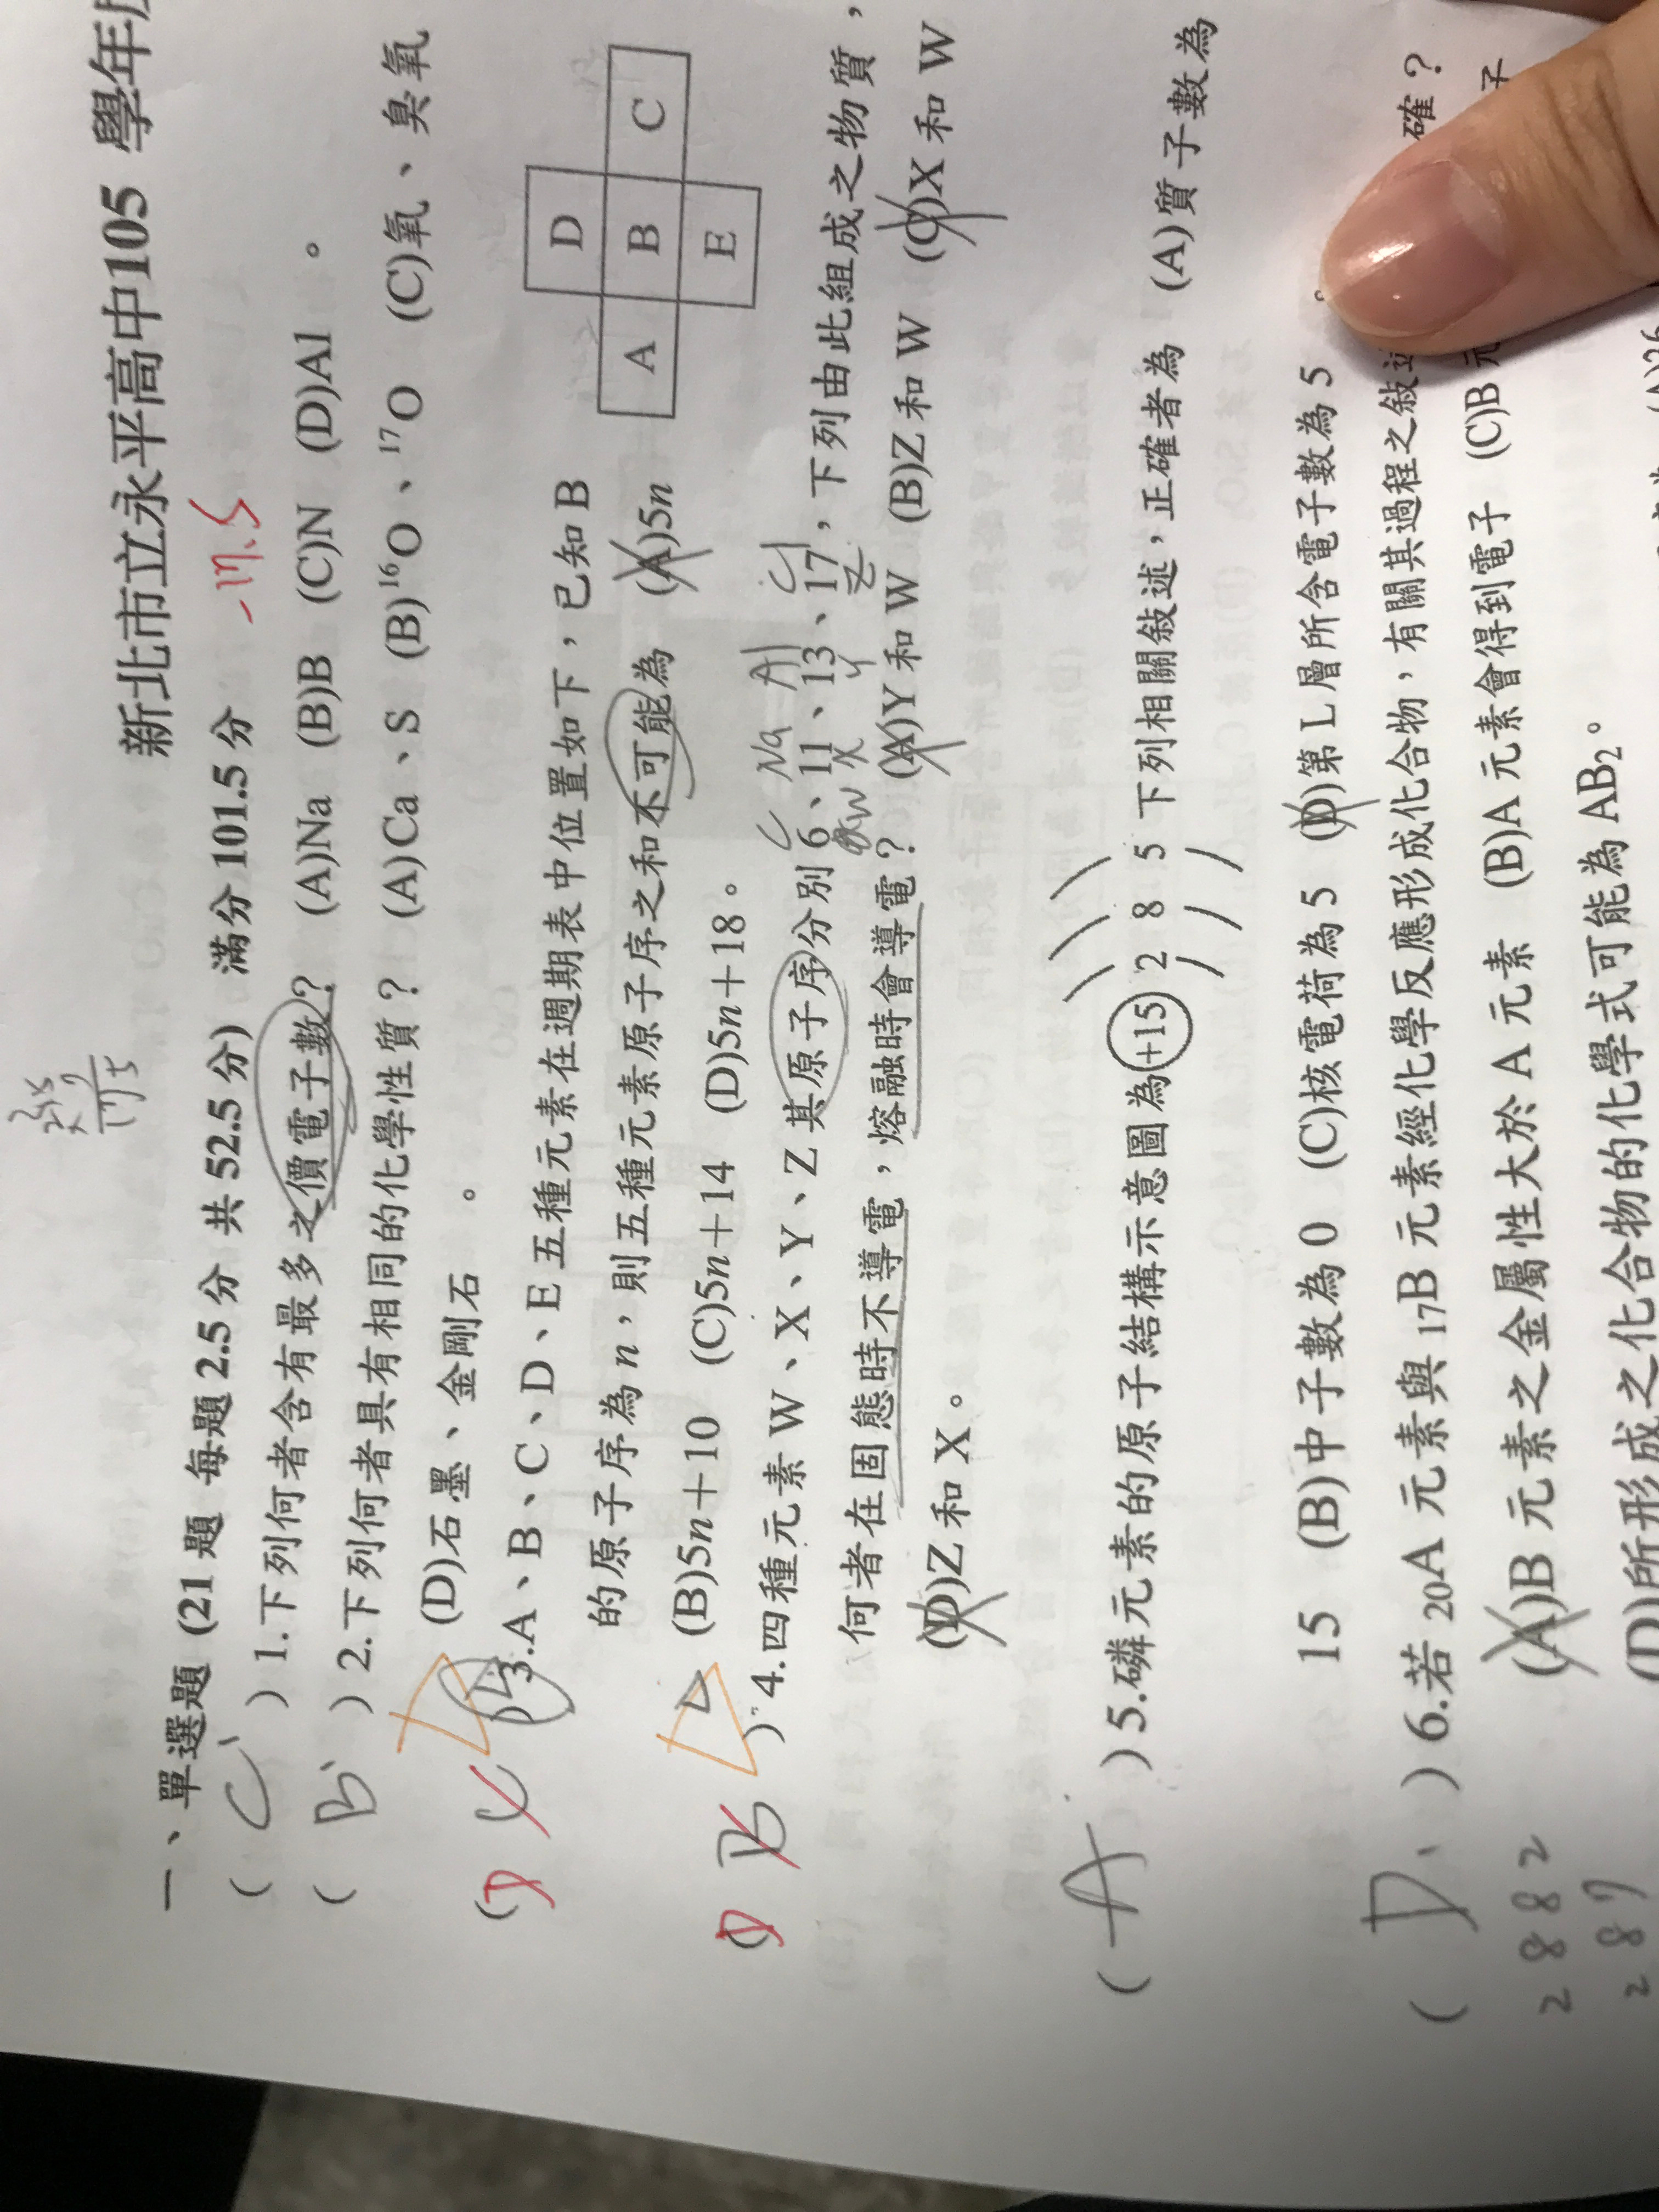 新北市立永平高中105 學年
-17.5
17.5
一、單選題 (21 題 每題 2.5 分 共 52.5 分) 滿分 101.5 分
( C ) 1.下列何者含有最多之價電子數? (A)Na (B)B (C)N (D)Al 。
( B ) 2.下列何者具有相同的化學性質？ (A)Ca、S (B)¹⁶O、¹⁷O (C)氧、臭氧
(D)石墨、金剛石 。
(D 3.A、B、C、D、E 五種元素在週期表中位置如下，已知 B
的原子序為 n，則五種元素原子序之和不可能為 (A)5n
(B)5n＋10 (C)5n＋14 (D)5n＋18。
D
A B C
E
C Na Al Cl
(D B ) 4.四種元素 W、X、Y、Z 其原子序分別 6、11、13、17，下列由此組成之物質，
W X Y Z
何者在固態時不導電，熔融時會導電？ (A)Y 和 W (B)Z 和 W (C)X 和 W
(D)Z 和 X。
( A ) 5.磷元素的原子結構示意圖為 +15 2 8 5 下列相關敘述，正確者為 (A)質子數為
15 (B)中子數為 0 (C)核電荷為 5 (D)第 L 層所含電子數為 5 。
( D ) 6.若 ₂₀A 元素與 ₁₇B 元素經化學反應形成化合物，有關其過程之敘述 確？
2 8 8 2
(A)B 元素之金屬性大於 A 元素 (B)A 元素會得到電子 (C)B 元 子
2 8 7
(D)所形成之化合物的化學式可能為 AB₂。